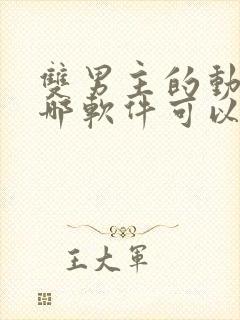 雙男主的動
哪軟件可以
王大軍